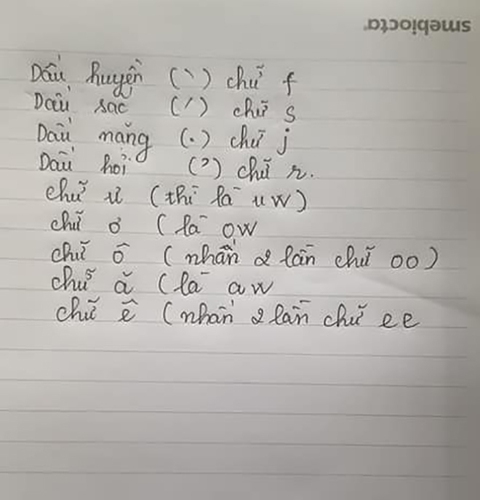 smebiocta.
Dấu huyền (`) chữ f
Dấu sắc (´) chữ s
Dấu nặng (.) chữ j
Dấu hỏi (?) chữ r.
chữ ư (thì là uw)
chữ ơ (là ow
chữ ô (nhấn 2 lần chữ oo)
chữ ă (là aw
chữ ê (nhấn 2 lần chữ ee